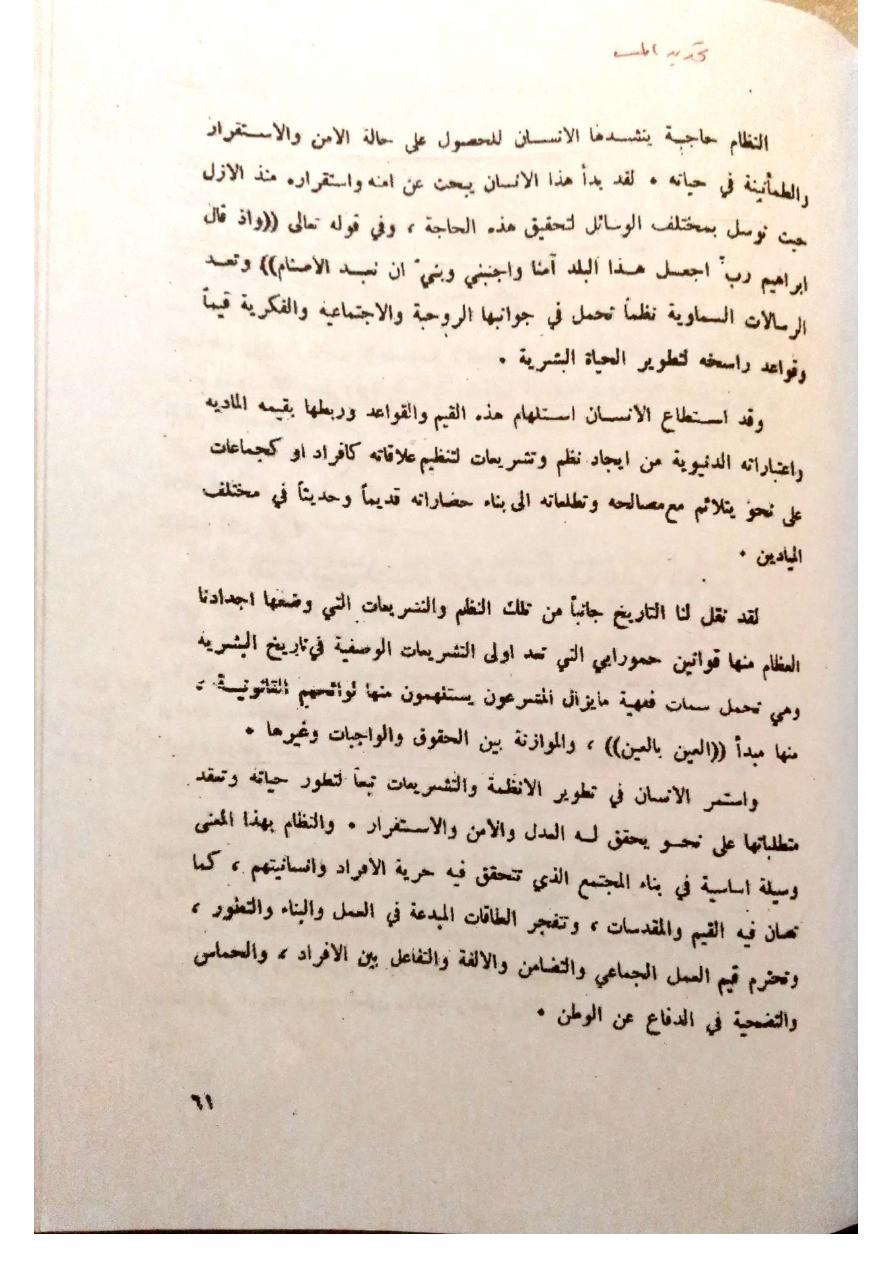 تحديد
النظام حاجة ينشدها الانسان للحصول على حالة الامن والاستقرار
والطمأنينة في حياته . لقد بدأ هذا الانسان يبحث عن امنه واستقراره منذ الازل
حيث توسل بمختلف الوسائل لتحقيق هذه الحاجة ، وفي قوله تعالى ((واذ قال
ابراهيم ربِّ اجعل هذا البلد آمنا واجنبني وبنيّ ان نعبد الأصنام)) وتعد
الرسالات السماوية نظماً تحمل في جوانبها الروحية والاجتماعيه والفكرية قيماً
وقواعد راسخه لتطوير الحياة البشرية .
وقد استطاع الانسان استلهام هذه القيم والقواعد وربطها بقيمه الماديه
واعتباراته الدنيوية من ايجاد نظم وتشريعات لتنظيم علاقاته كافراد او كجماعات
على نحو يتلائم مع مصالحه وتطلعاته الى بناء حضاراته قديماً وحديثاً في مختلف
الميادين .
لقد نقل لنا التاريخ جانباً من تلك النظم والتشريعات التي وضعها اجدادنا
العظام منها قوانين حمورابي التي تعد اولى التشريعات الوصفية في تاريخ البشريه
وهي تحمل سمات فقهية مايزال المتسرعون يستلهمون منها لوائحهم القانونية ،
منها مبدأ ((العين بالعين)) ، والموازنة بين الحقوق والواجبات وغيرها .
واستمر الانسان في تطوير الانظمة والتشريعات تبعاً لتطور حياته وتعقد
متطلباتها على نحو يحقق له العدل والأمن والاستقرار . والنظام بهذا المعنى
وسيلة اساسية في بناء المجتمع الذي تتحقق فيه حرية الأفراد وانسانيتهم ، كما
تصان فيه القيم والمقدسات ، وتتفجر الطاقات المبدعة في العمل والبناء والتطور ،
وتحترم قيم العمل الجماعي والتضامن والالفة والتفاعل بين الافراد ، والحماس
والتضحية في الدفاع عن الوطن .
٦١